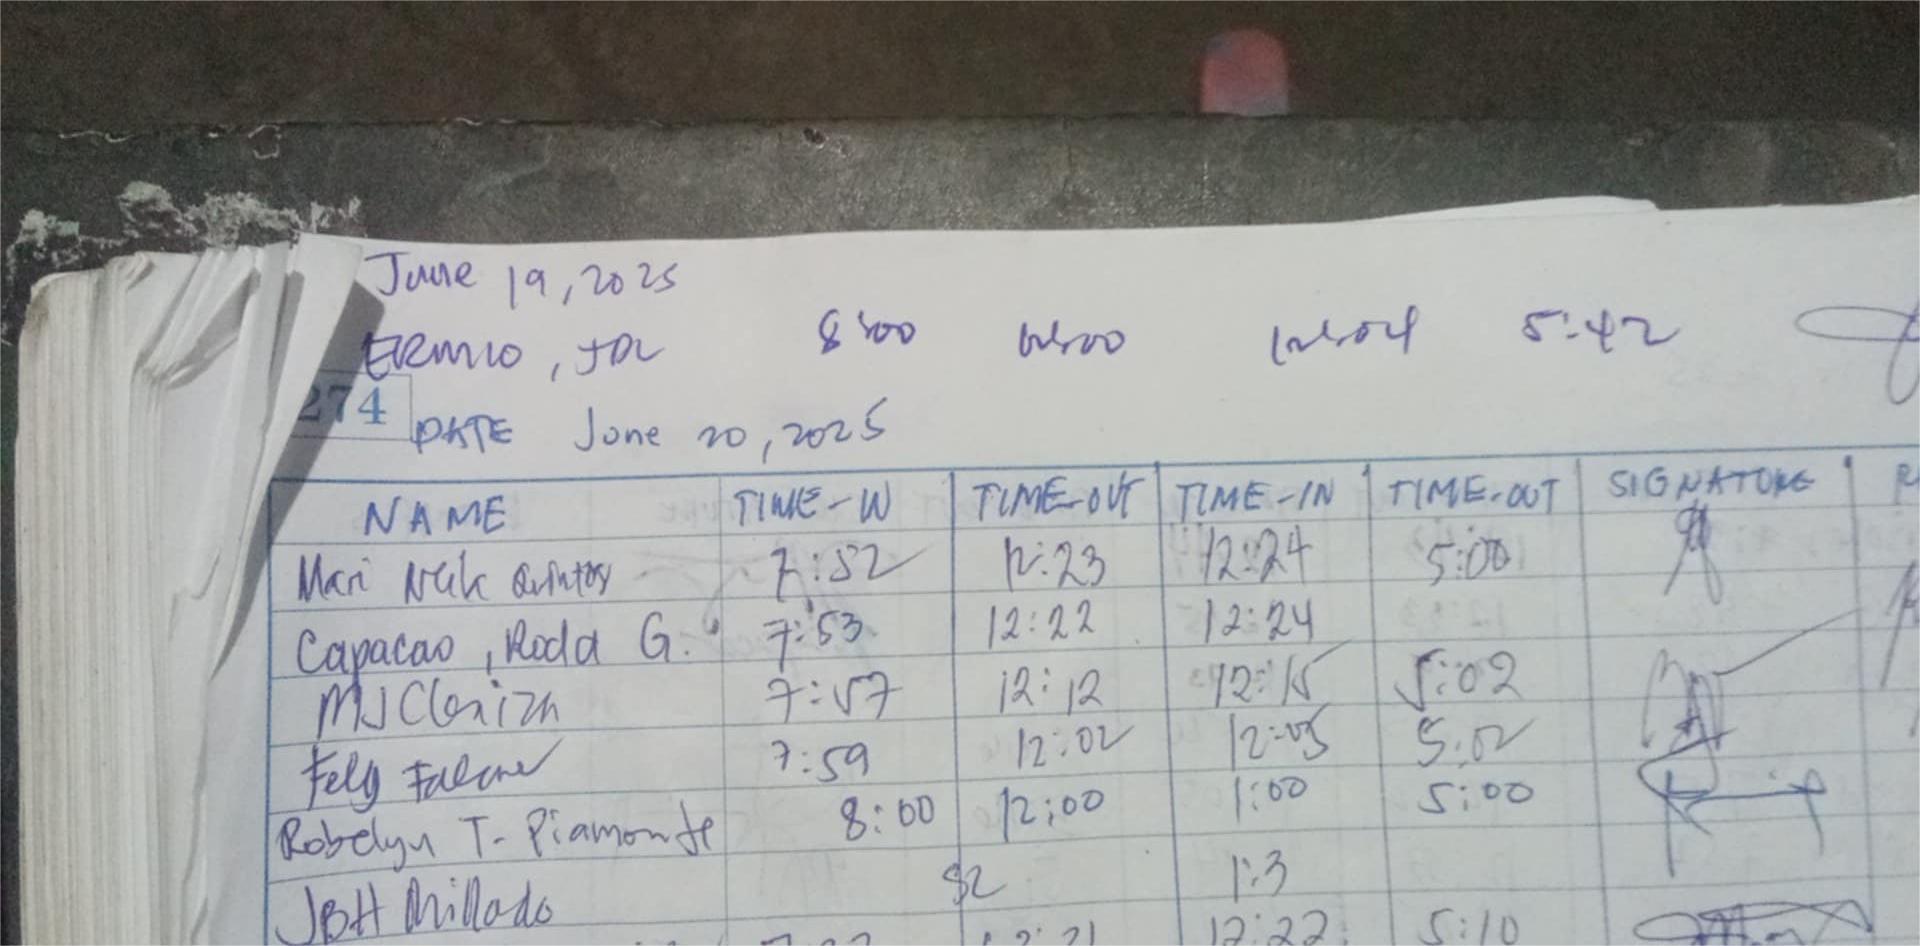 June 19, 2025
ERMIO, JDL 8:00 12:00 12:04 5:42
274 DATE June 20, 2025
NAME TIME-IN TIME-OUT TIME-IN TIME-OUT SIGNATURE
Mari Quintos 7:52 12:23 12:24 5:00
Capacao, Roda G. 7:53 12:22 12:24
MJ 7:57 12:12 12:15 5:02
7:59 12:02 12:05 5:02
Robelyn T. Piamonte 8:00 12:00 1:00 5:00
JBH Millado 1:3
12:22 5:10